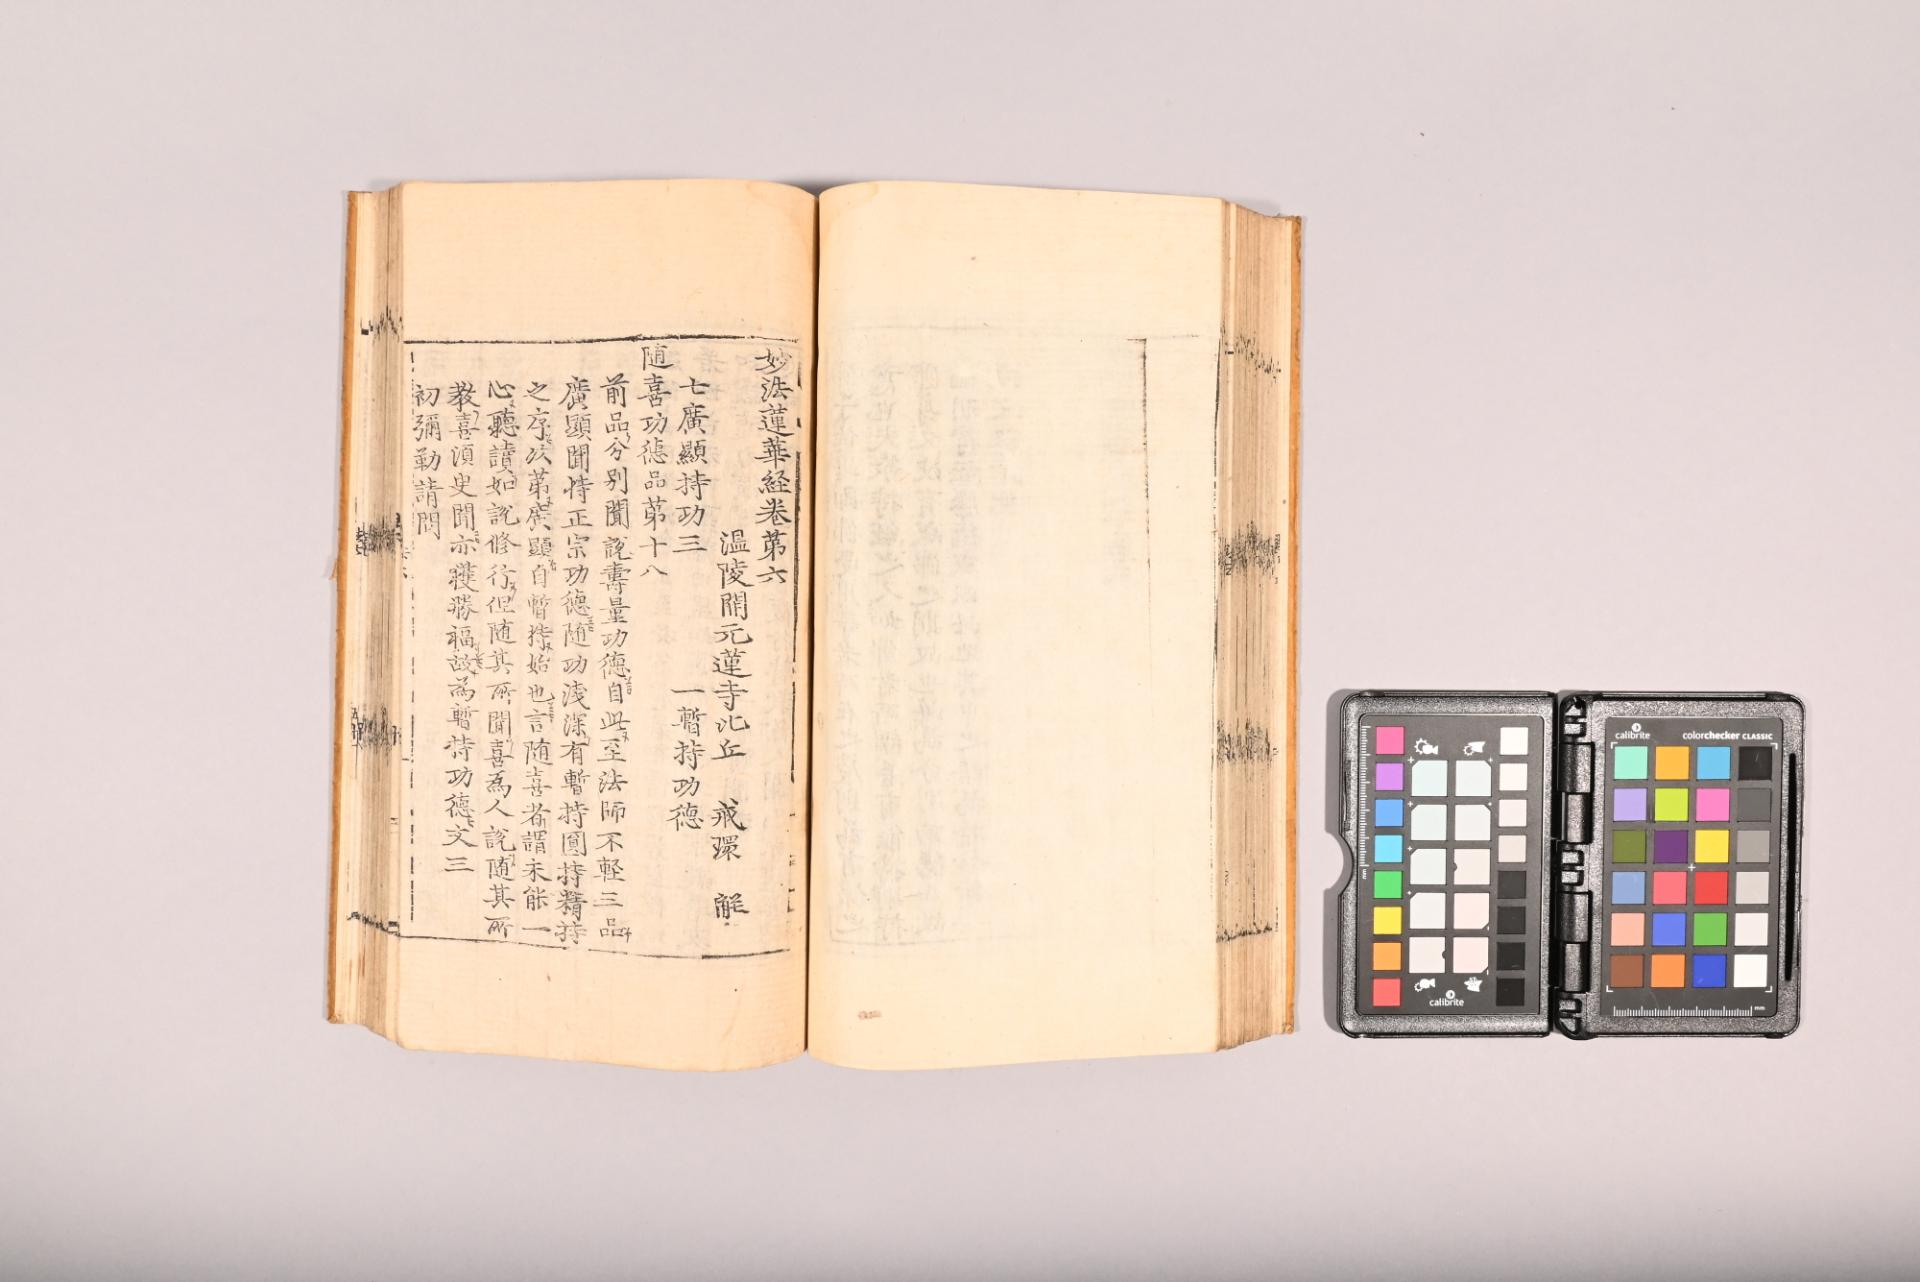 妙法蓮華経卷第六
溫陵開元蓮寺比丘 戒環 解
七廣顯持功三 一暫持功德
随喜功德品第十八
前品分别聞說壽量功德自此至法師不輕三品
廣顯聞持正宗功德随功淺深有暫持圓持精持
之序次第廣顯自暫持始也言随喜者謂未能一
心聽讀如說修行但随其所聞喜為人說随其所
教喜須臾聞亦獲勝福故為暫持功德文三
初彌勒請問
calibrite
calibrite colorchecker CLASSIC
mm
mm